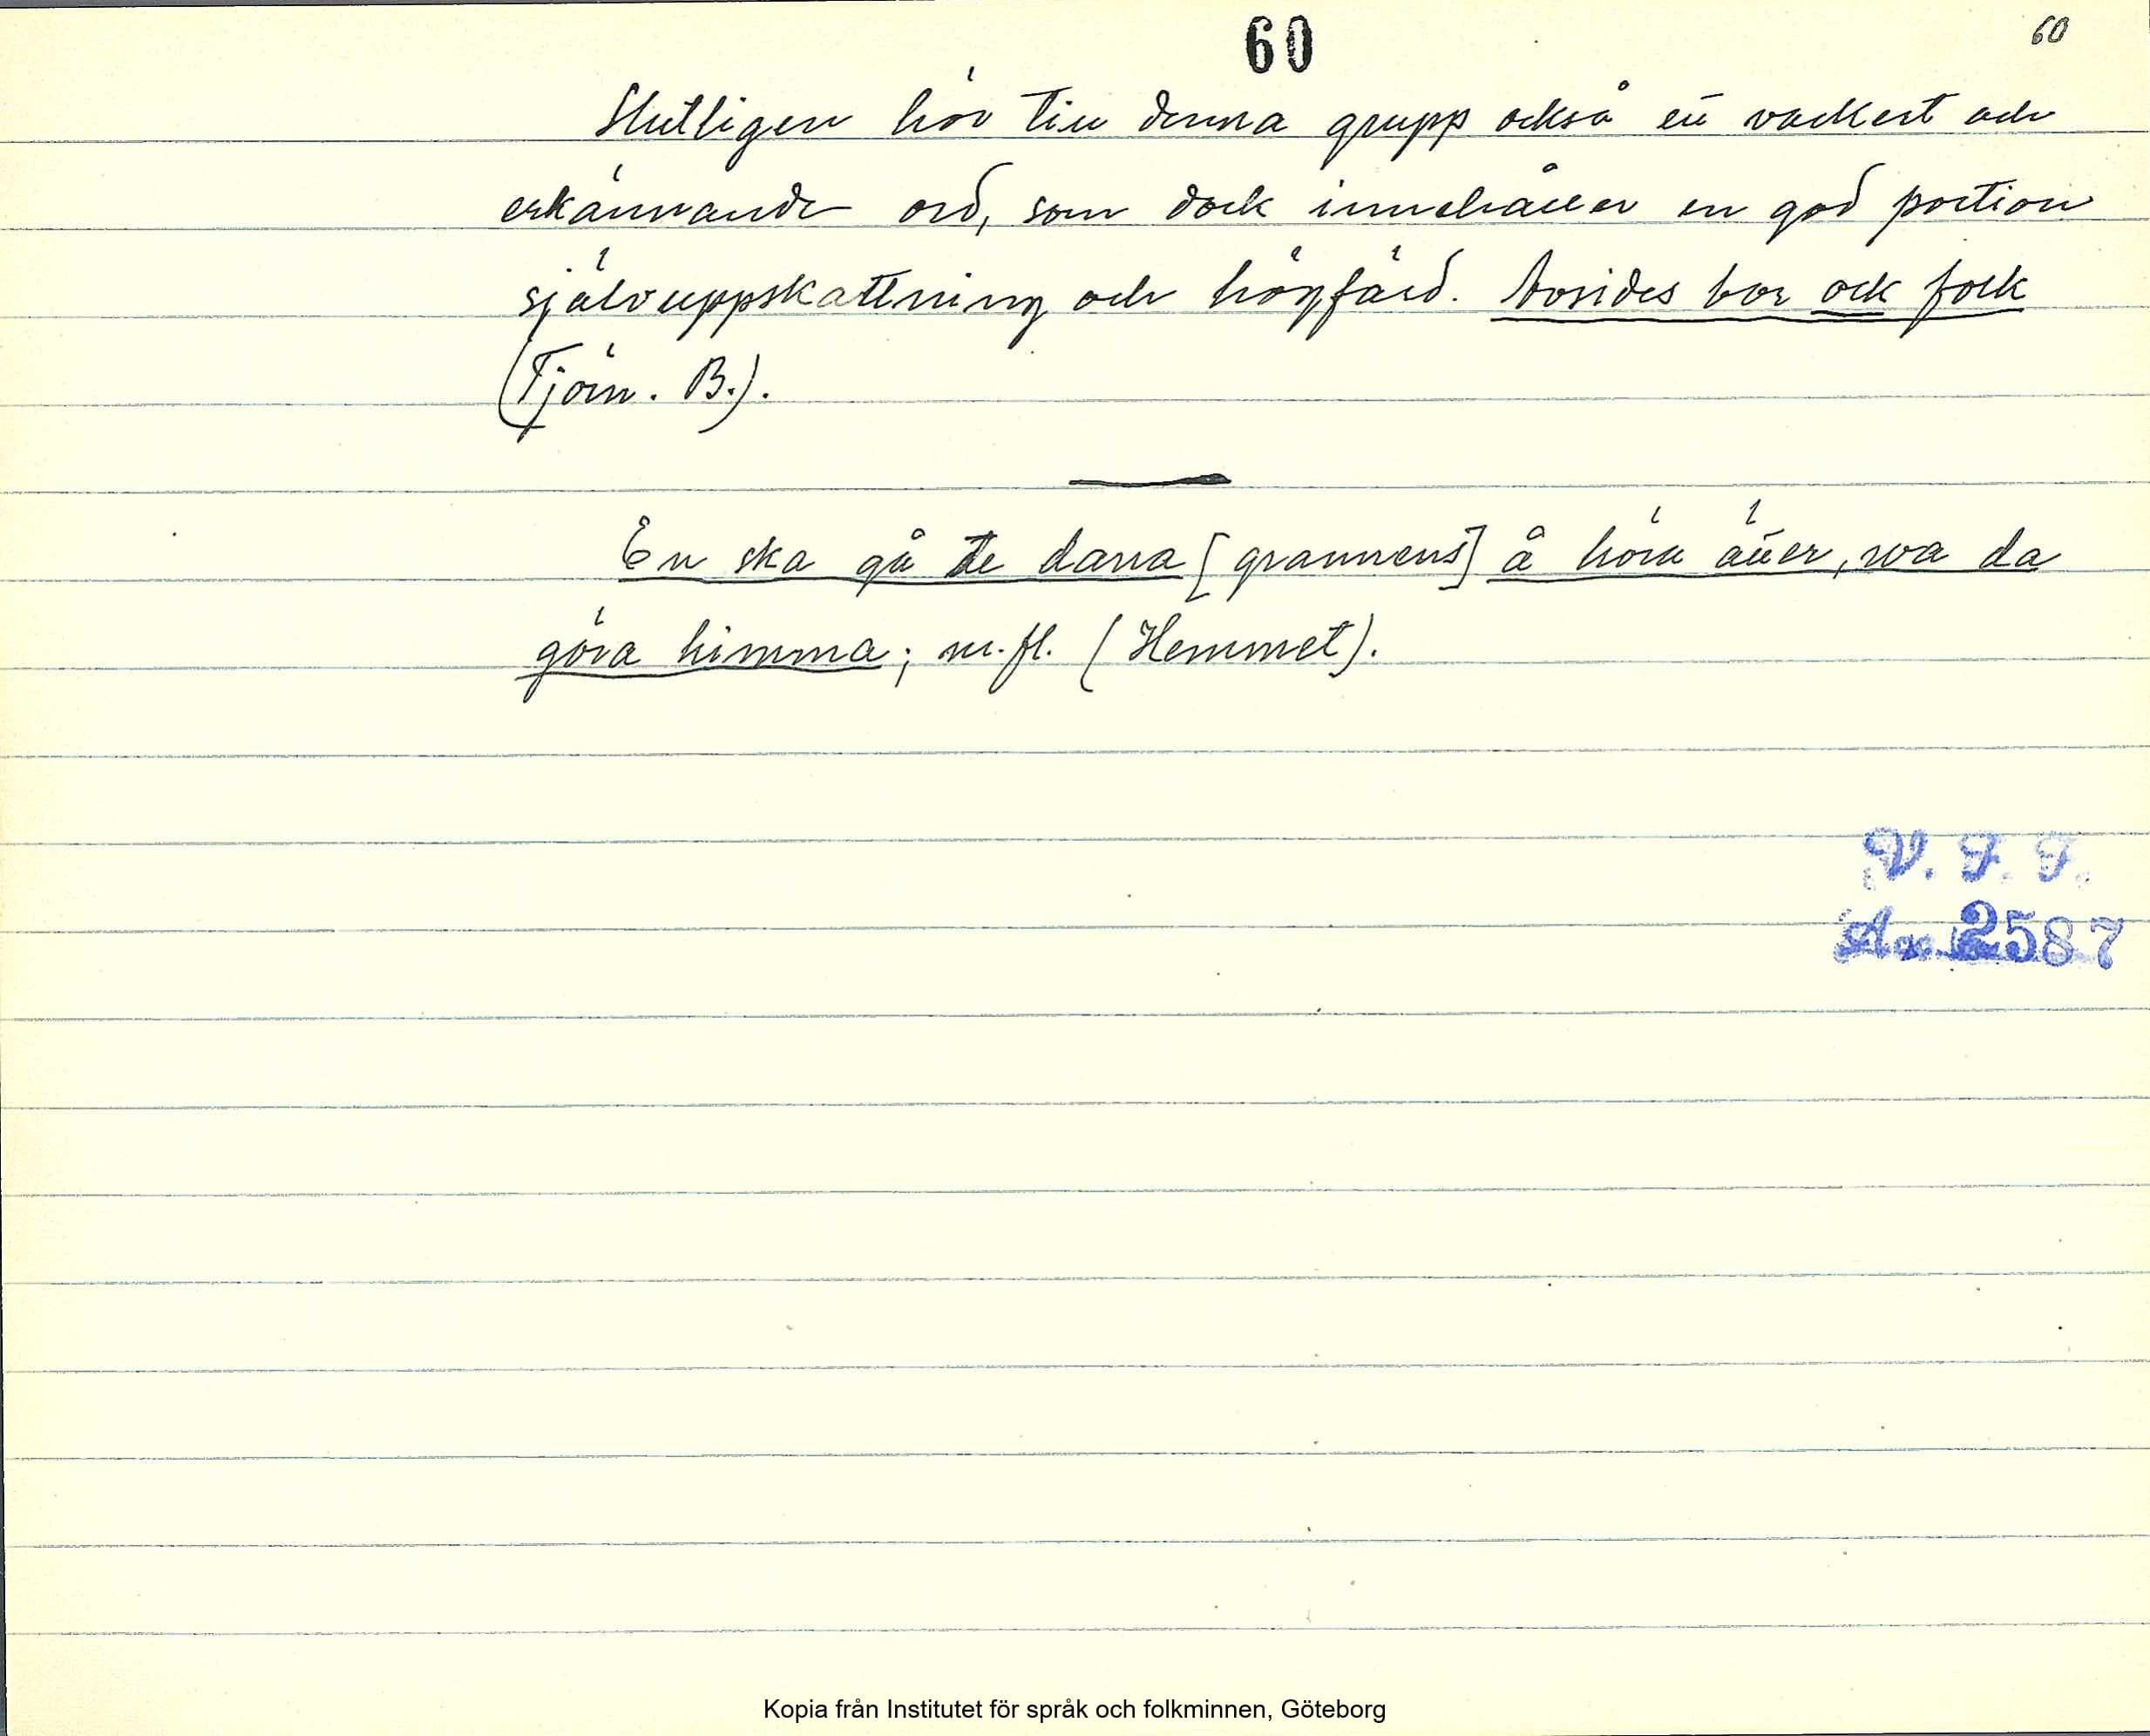 60
60
Slutligen hör till denna grupp också ett vackert och
erkännande ord, som dock innehåller en god portion
självuppskattning och högfärd. Avsides bor ock folk
(Tjörn. B.).
En ska gå te dana [grannens] å höra äller, va da
göra himma; m.fl. (Hemmet).
V. F. F.
Acc. 2587
Kopia från Institutet för språk och folkminnen, Göteborg